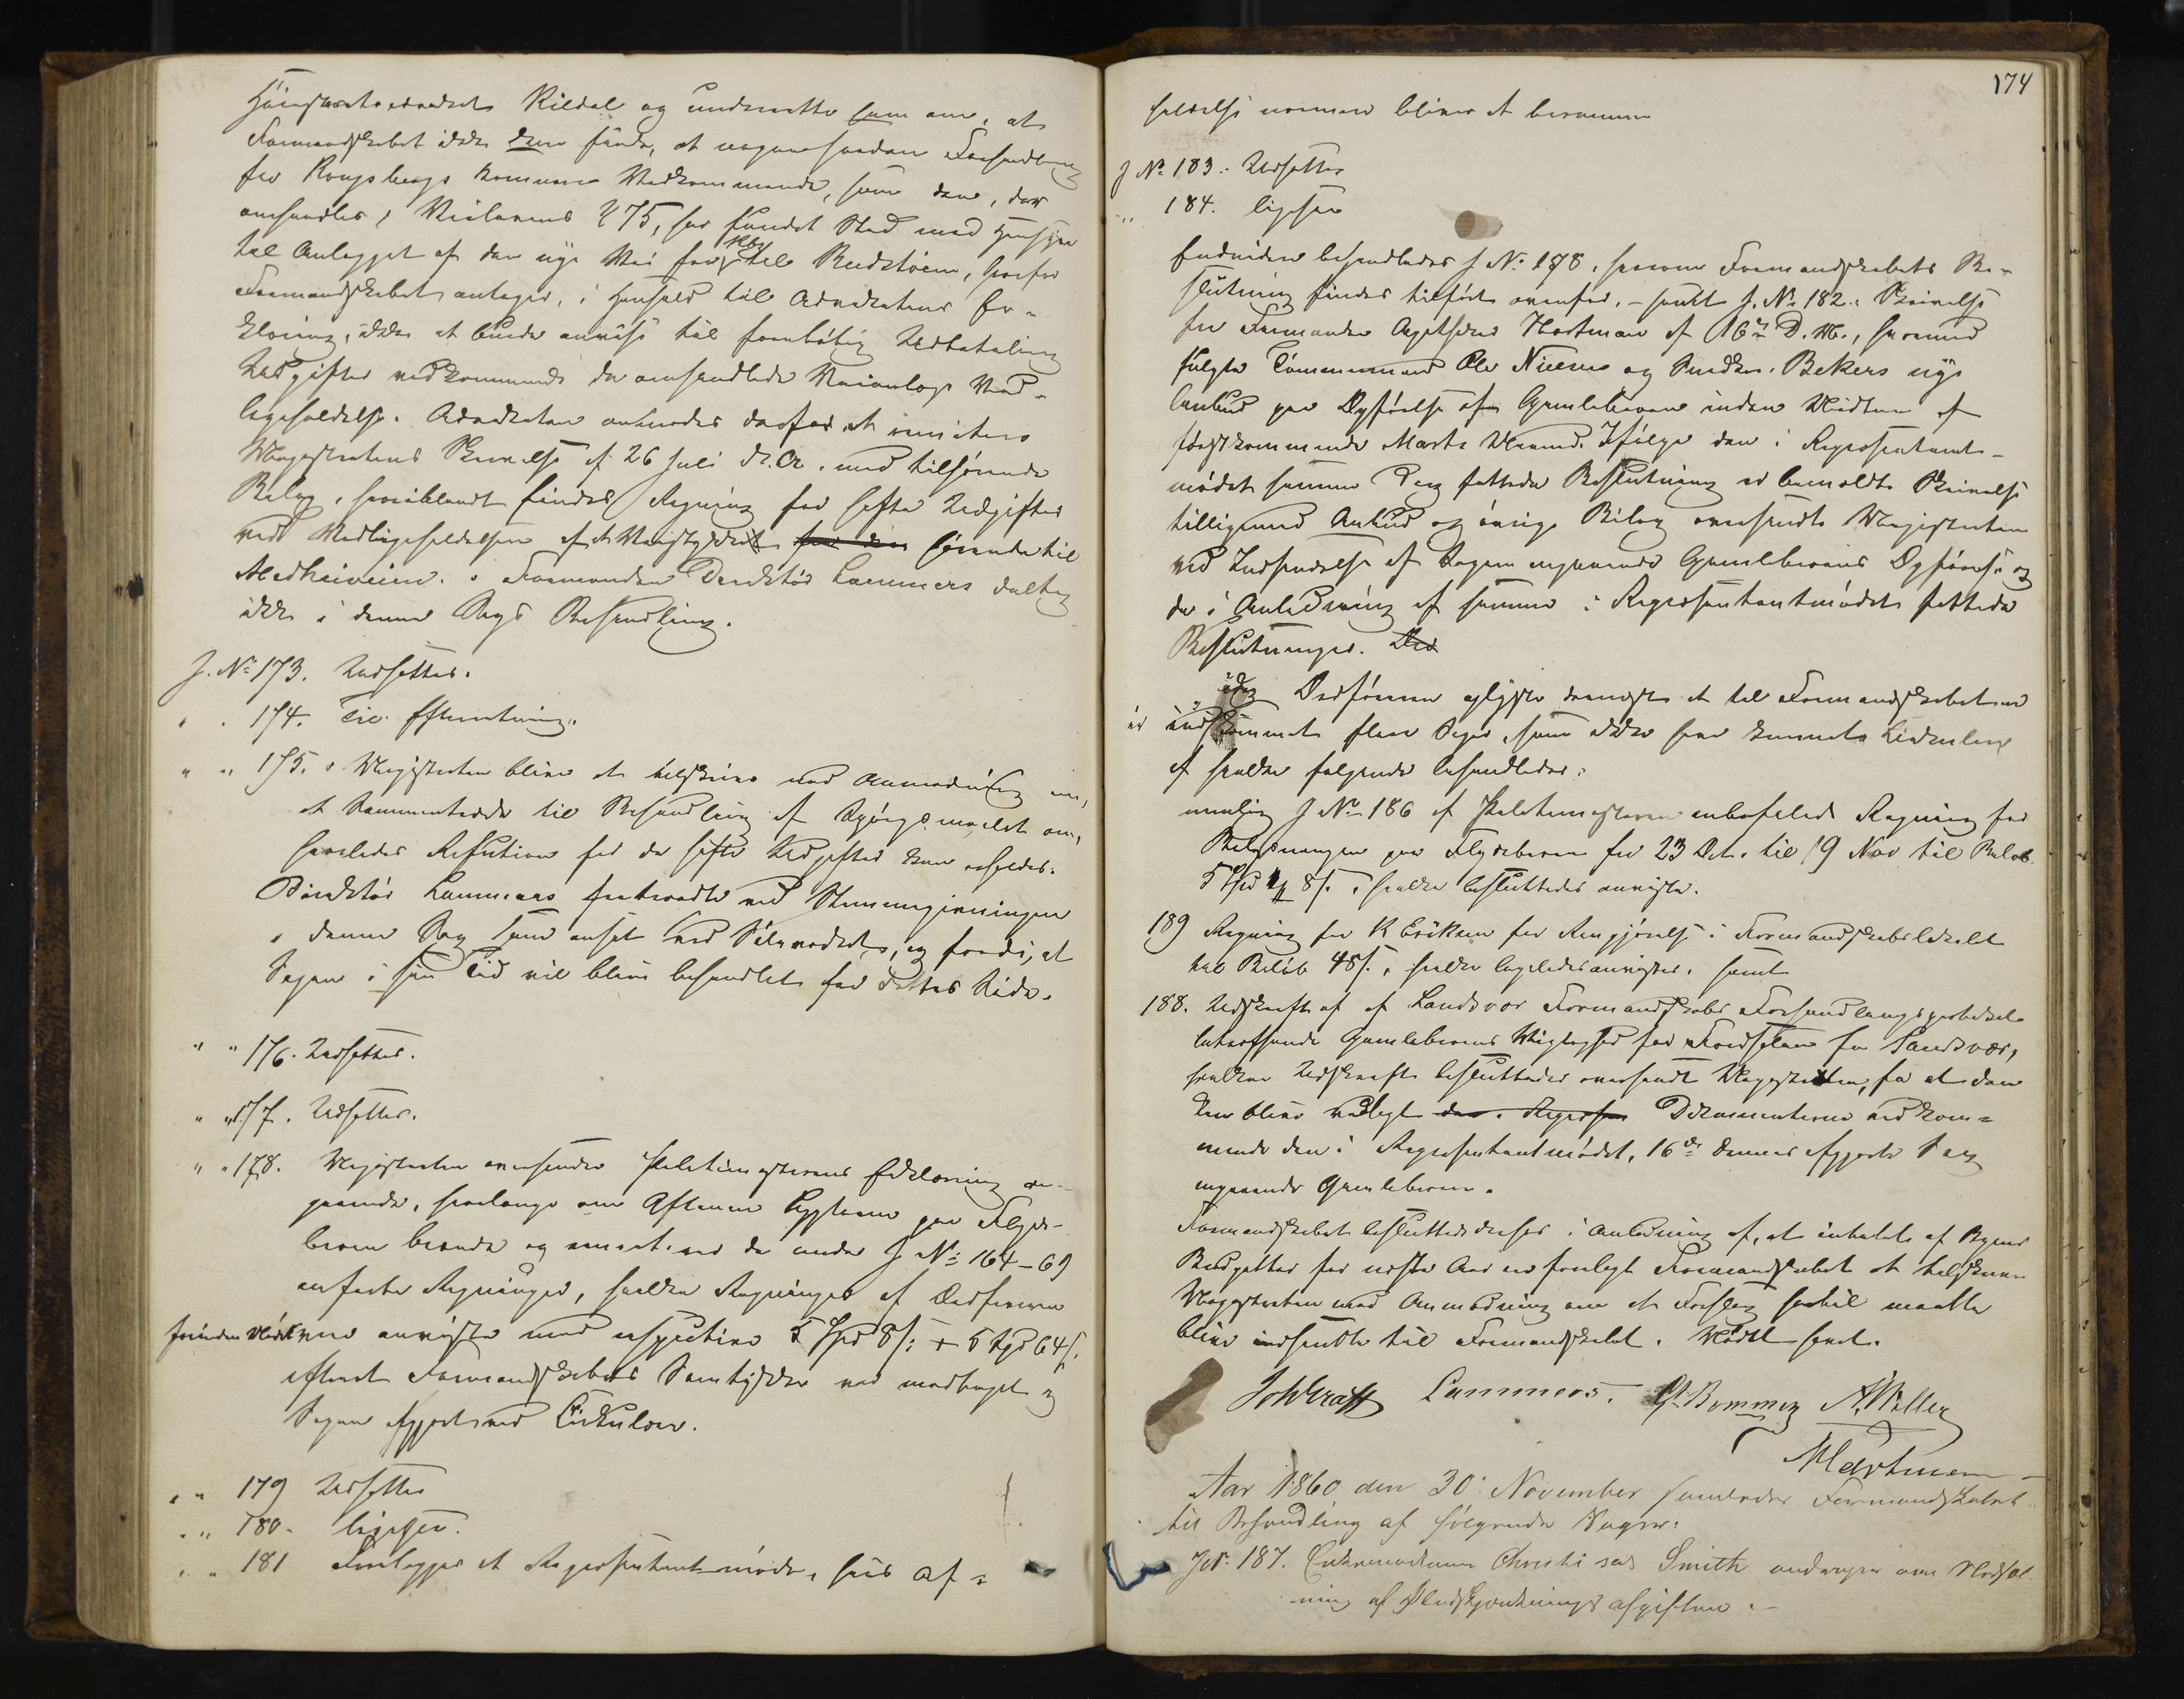 Høiesteretsadvokat Rildal og underrette ham om, at
Formandskabet ikke kan finde, at nogen saadan Forhandling
fra Kongsbergs Kommunes Vedkommende, som den, der
omhandles i Veilovens § 75, har fundet Sted med Hensyn
til Anlægget af den nye Vei fra Kbg til Rudstøen, hvorfor
Formandskabet antager, i Henhold til Advokatens Er-
klæring, ikke at burde anvise til foreløbig Udbetaling
Udgifter vedkommende de omhandlede Veianlægs Ved-
ligeholdelse. Advokaten anmodes derfor at remittere
Magistratens Skrivelse af 26 Juli d. A. med tilhørende
Bilag, hvoriblandt findes Regning for hafte Udgifter
ved Vedligeholdelsen af et Veistykke for den førende til
Medheiveien. Formanden Direktør Lammers deltog
ikke i denne Sags Behandling.
J. No 173. Udsættes.
" " 174. Til Efterretning.
" " 175. Magistraten bliver at tilskrive med Anmodning om,
at sammentræde til Behandling af Spørgsmaalet om,
hvorledes Refusion for de hafte Udgifter kan erholdes.
Direktør Lammers fratraadte ved Stemmegivningen
i denne Sag som ansat ved Sølvværket, og fordi, at
Sagen i sin Tid vil blive behandlet fra dettes Side.
" " 176. Udsættes.
" " 177. Udsættes.
" " 178. Magistraten oversender Politimesterens Erklæring an-
gaaende, hvorlænge om Aftenen Lygterne paa Flyde-
broen brænde og ere de under J No 164-69
anførte Regninger, hvilke Regninger af Ordføreren
forinden Mødet ere anviste med respektive 5 Spd 8 s. + 5 Spd 64 s.
efterat Formandskabets Samtykke var modtaget og
Sagen afgjort ved Cirkulær.
" " 179 Udsættes
" " 180. ligesaa.
" " 181 Forelægges et Repræsentantmøde, hvis Af-
174
holdelse nærmere bliver at beramme
J No 183. Udsættes
" 184. ligesaa
Endvidere behandledes J No 178, hvorom Formandskabets Be-
slutning findes tilført ovenfor, - samt J. No 182. Skrivelse
fra Formanden Apotheker Hartmann af 16de D. M., hvormed
fulgte Tømmermand Ole Nilsens og Smeden Bekers nye
Anbud paa Opførelse af Gamlebroen inden Midten af
førstkommende Marts Maaned. Ifølge den i Repræsentant-
mødet samme Dag fattede Beslutning er bemeldte Skrivelse
tilligemed Anbud og øvrige Bilag oversendt Magistraten
ved Indsendelse af Sagen angaaende Gamlebroens Opførelse og
de i Anledning af samme i Repræsentantmødet fattede
Beslutninger. Der
idag Ordføreren oplyste dernæst at til Formandskabet er
indkommet flere Sager, som ikke har kunnet Cirkulere
af hvilke følgende behandledes:
nemlig J No 186 af Politimesteren anbefalede Regning for
Belysningen paa Flydebroen fra 23 Oct. til 19 Nov til Beløb
5 Spd 8 s., hvilke besluttedes anviste.
189 Regning fra K Eriksen for Rengjørelse i Formandskabslokalet
til Beløb 48 s., hvilke ligeledes anvistes. samt
188. Udskrift af af Sandsvær Formandskabs Forhandlingsprotokol
betreffende Gamlebroens Vigtighed for Færdselen fra Sandsvær,
hvilken Udskrift besluttedes oversendt Magistraten, for at den
kan blive vedlagt den Repræsen Dokumenterne vedkom-
mende den i Repræsentantmødet, 16de dennes afgjorte Sag
angaaende Gamlebroen.
Formandskabet besluttede derhos i Anledning af, at intet af Byens
Budgetter for næste Aar er forelagt Formandskabet at tilskrive
Magistraten med Anmodning om at Forslag hertil maatte
blive indsendte til Formandskabet. Mødet hævet.
Joh Graff Lammers. G. Bommen A. Weller
Hartmann
Aar 1860 den 30 November samledes Formandskabet
til Behandling af følgende Sager:
J No 187. Enkemadame Christi sal Smith andrager om Nedsæt-
ning af Udskjænkningsafgiften.